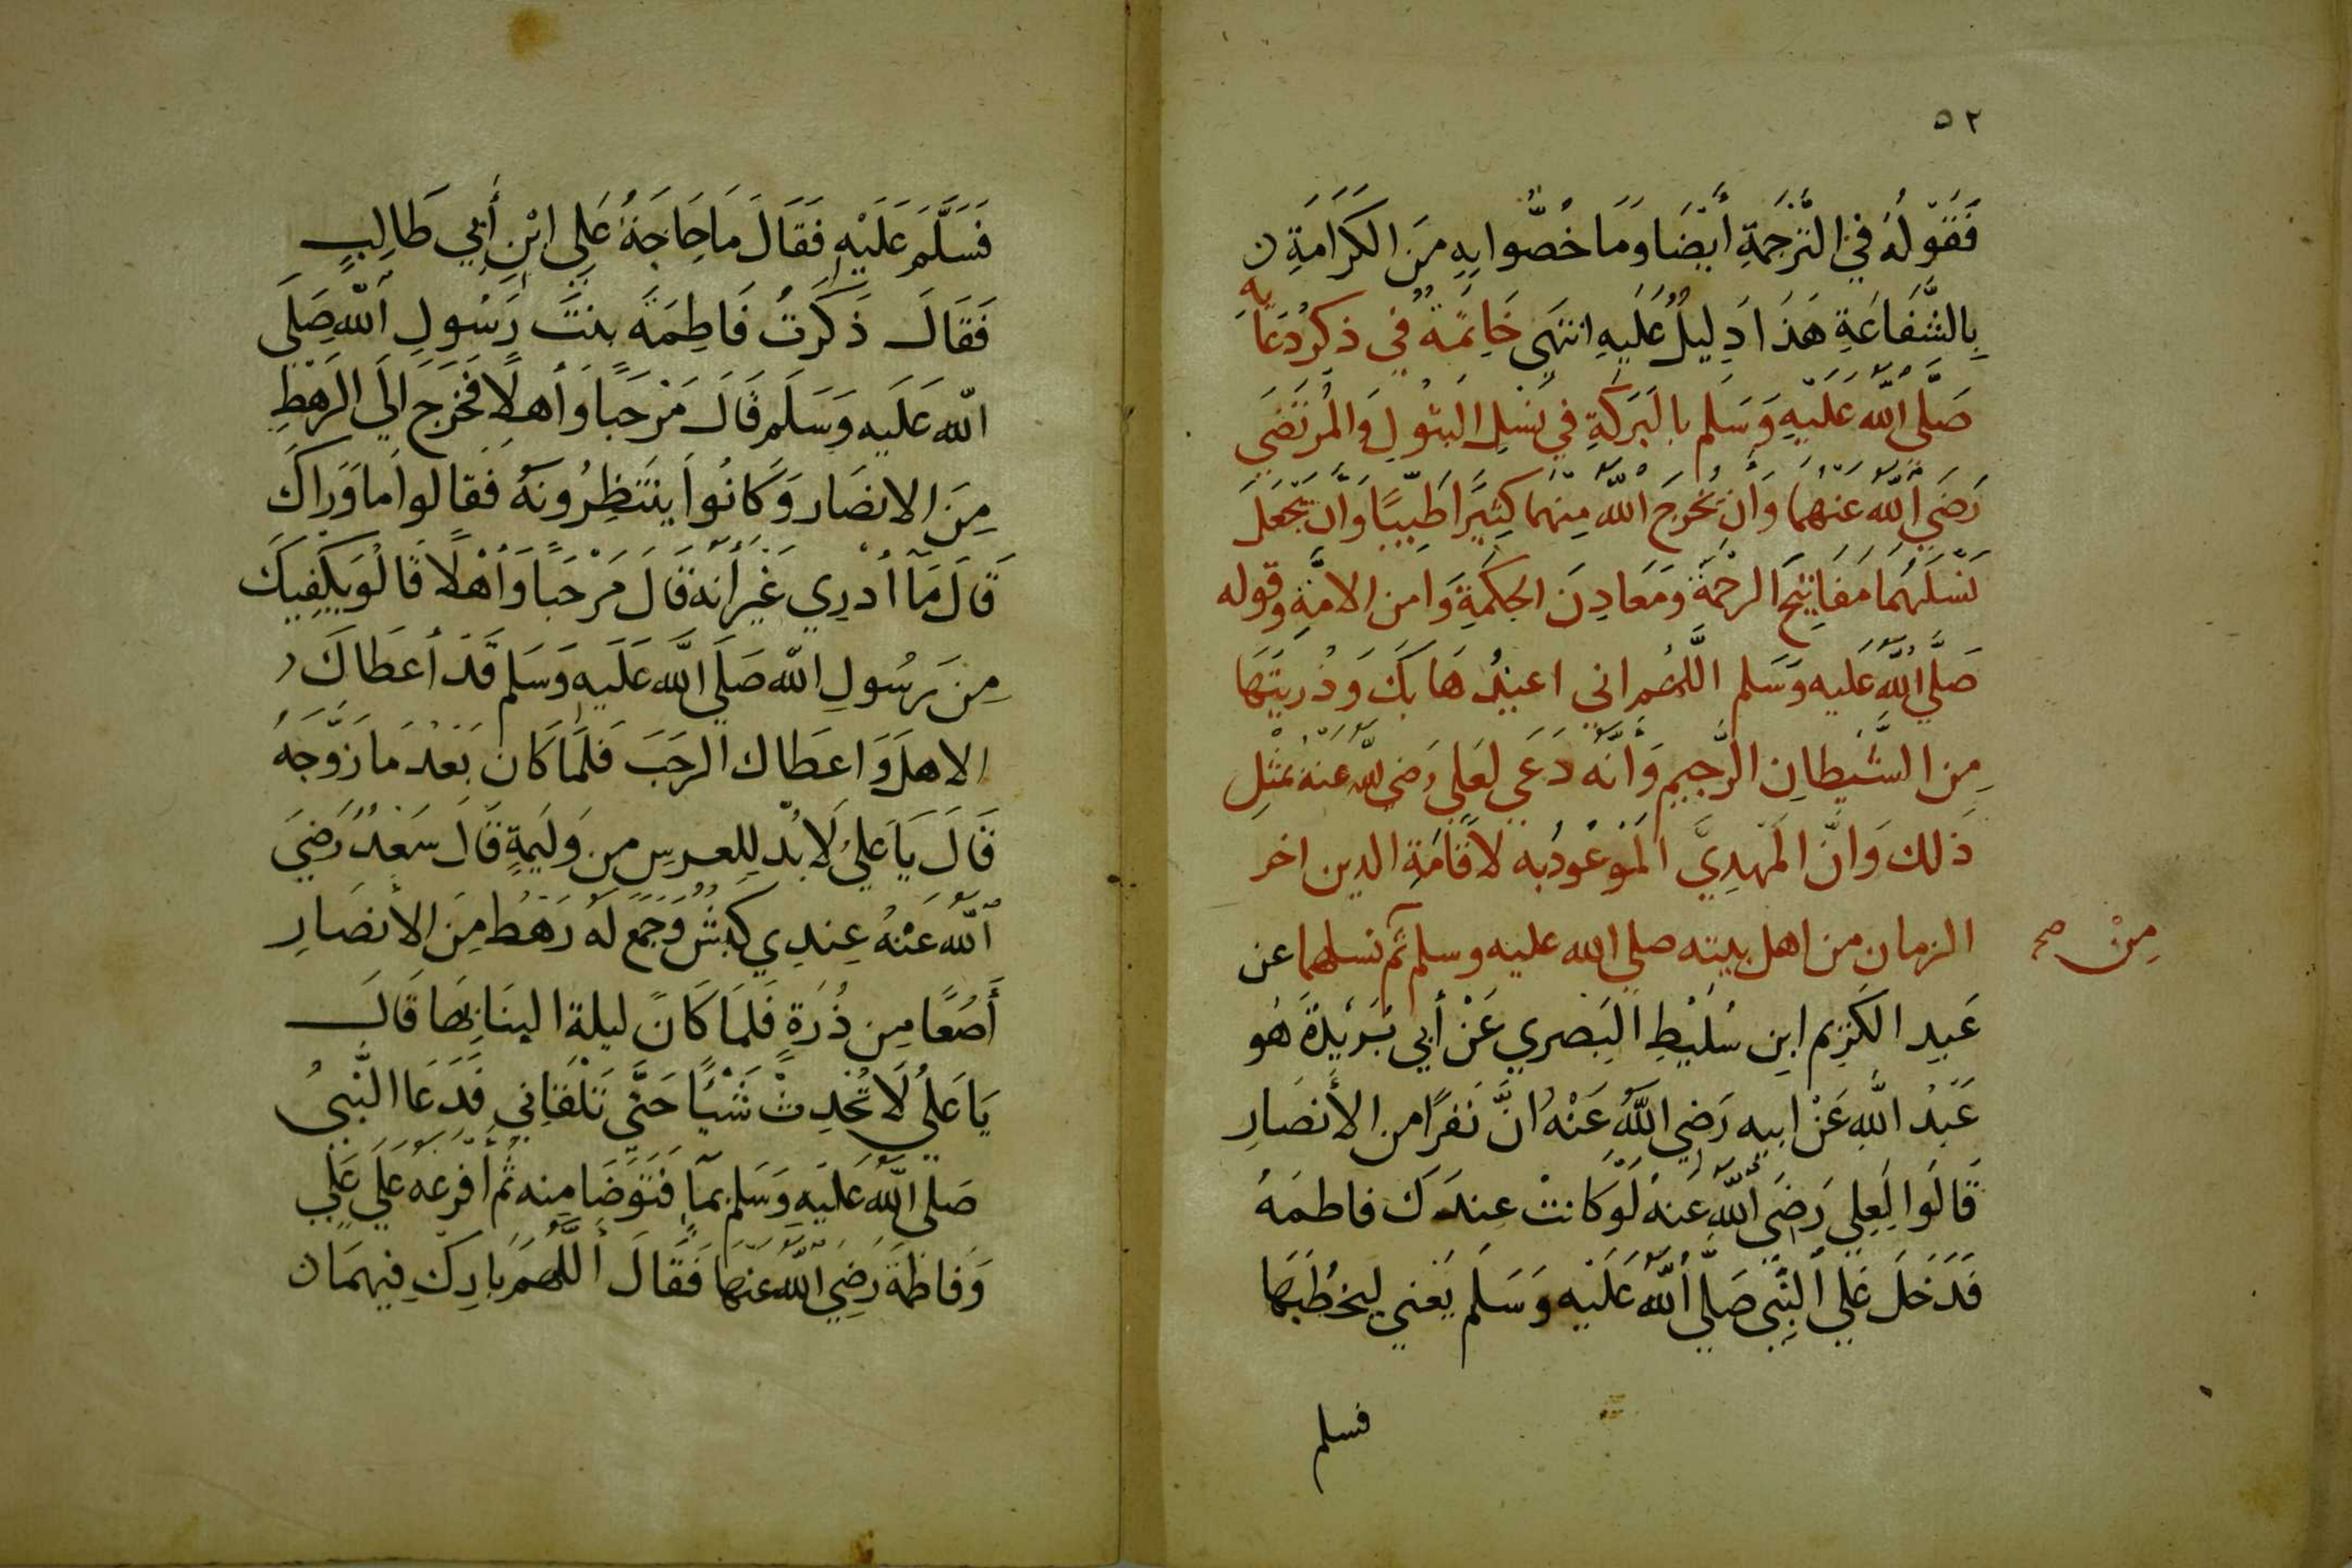 ٥٢
فَقَوْلُهُ فِي التَّرْجَمَةِ أَيْضَا وَمَا خُصُّوا بِهِ مِنَ الكَرَامَةِ
بِالشَّفَاعَةِ هَذَا دِلِيلُ عَلَيهِ انتهَى خَاتِمَة فِي ذِكْرِ دُعَايِهِ
صَلَّى اللَّه عَلَيْهِ وَسَلم بِالبَرَكَةِ فِي نَسْلِ البتُولِ وَالمُرْتَضَى
رَضِي اللَّه عَنهُمَا وَان يُخْرِجَ اللَّه مِنهُمَا كثِيَرًا طَيِّبًا وَأَن يَجْعَلَ
نَسْلَهُمَا مَفَاتِيْحَ الرحْمَة وَمَعَادِنَ الحِكْمَةِ وَامن الامَّةِ وقوله
صَلَّى اللَّه عَليه وَسَلم اللَّهُم اني اعيذُ هَا بِكَ وَذُرِيَّتَهَا
مِن الشَّيْطَانِ الرَّجِيمِ وَأَنَّهُ دَعَي لِعَلي رَضي اللَّه عَنهُ بمثلِ
ذَلك وَانَّ المَهْدِيَّ المَوْعُودُ به لاقَامَةِ الدين اخر
الزمان من اهل بيته صلي الله عليه وسلم ثم نسلهما عن
مِنْ صح
عَبدِ الكَرِيم ابنِ سُلَيْطِ البَصري عَنْ أَبي بُرَيْدَةَ هُو
عَبْدُ اللَّهِ عَنْ ابيه رَضِي اللَّه عَنْهُ انَّ نَفَرًا من الأَنصَارِ
قَالُوا لِعَلِي رَضيَ اللَّه عَنهُ لَوْ كَانتْ عِندَكَ فاطمَهُ
فَدَخَلَ عَلي النَّبِي صَلَّى اللَّه عَلَيْه وَسَلَم يَعْني ليخطُبَهَا
فسلم
فَسَلَّمَ عَلَيْهِ فَقَالَ مَا حَاجَةُ عَلِي ابْنِ أَبِي طَالِبٍ
فَقَالَ ذَكَرتُ فَاطِمَةَ بِنتَ رَسُولِ اللَّه صَلَى
اللَّه عَلَيه وَسَلم قَالَ مَرْحَبًا وَأَهلًا فَخَرَجَ الَي الرَهْطِ
مِنَ الانصَار وَكَانُوا يَنتَظِرُونَهُ فَقَالوا مَا وَرَاكَ
قَالَ مَا أدْرِي غَيْرَ أَنه قَالَ مَرْحَبًا وَأَهْلًا قَالُو يَكْفِيكَ
مِنَ رَسُولِ اللَّه صَلَي اللَّه عَلَيهِ وَسَلم قَد أَعطَاكَ
الاهلَ وَاعطَاك الرحَبَ فَلمَا كَان بَعْدَ مَا زَوَّجَهُ
قَالَ يَا عَليُ لَا بُدّ لِلعرسِ من وَليمةٍ قَال سَعْدُ رَضِيَ
اللَّه عَنْهُ عِندِي كَبْشٌ وَجَمَع لَهُ رَهْطٌ مِنَ الأَنصَارِ
أَصُعًا مِن ذُرَةٍ فَلَمَا كَانَ ليلة البِنَا بِهَا قَالَ
يَا عَلي لَا تُحْدِثْ شَيْئًا حَتَّى تَلْقَانِي فَدَعَا النَّبيُ
صَلى اللَّه عَلَيهِ وَسَلم بمآءٍ فَتَوَضَا مِنه ثُم أَفرَغَه عَلَي عَلي
وَفَاطمةَ رَضِي اللَّه عَنهمَا فَقَالَ أللَّهُمَ بَارِكِ فِيهمَا